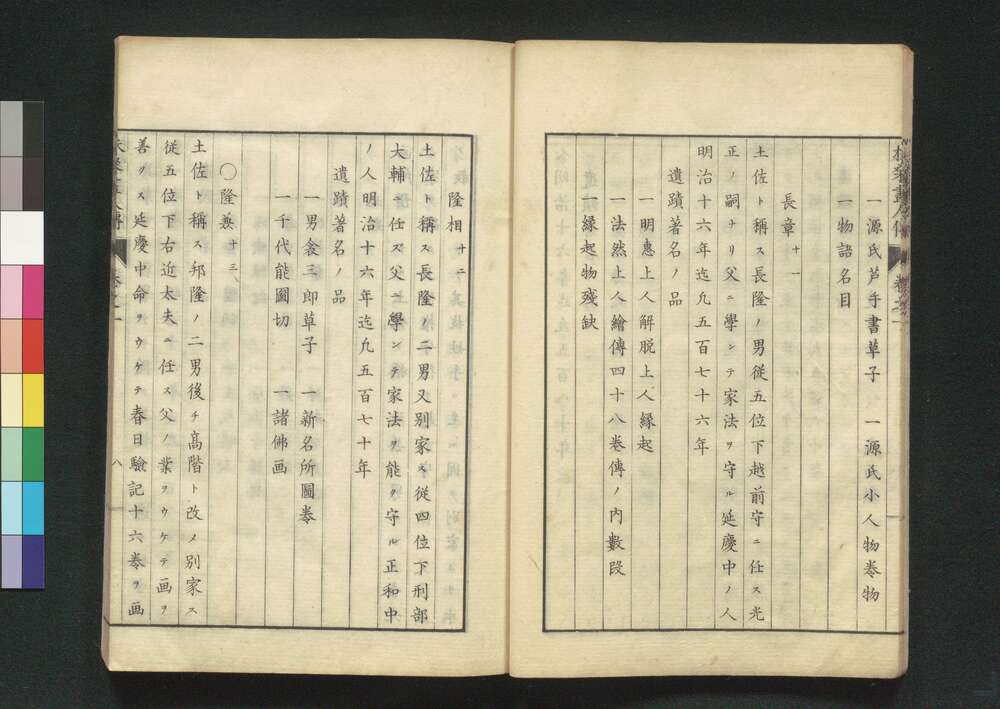 一源氏芦手書草子　一源氏小人物巻物
一物語名目
長章 十一
土佐ト稱ス長隆ノ男従五位下越前守ニ任ス光
正ノ嗣ナリ父ニ學ンテ家法ヲ守ル延慶中ノ人
明治十六年迄九五百七十六年
遺蹟著名ノ品
一明惠上人解脱上人縁起
一法然上人繪傳四十八巻傳ノ内數段
縁起物残缺
隆相 十二
土佐ト稱ス長隆ノ二男又別家ス従四位下刑部
大輔ニ任ス父ニ學ンテ家法ヲ能ク守ル正和中
ノ人明治十六年迄九五百七十年
遺蹟著名ノ品
一男衾三郎草子　一新名所圖巻
一千代能圖切　一諸佛画
〇隆兼 十三
土佐ト稱ス邦隆ノ二男後チ髙階ト改メ別家ス
従五位下右近太夫ニ任ス父ノ業ヲウケテ画ヲ
善クス延慶中命ヲウケテ春日驗記十六巻ヲ画
八